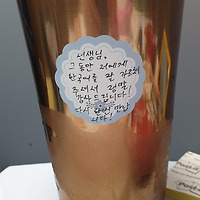 선생님,
그동안 저에게
한국어를 잘 가르쳐
주셔서 정말
감사드립니다!
다시 한번 만납
시다!
Post-it